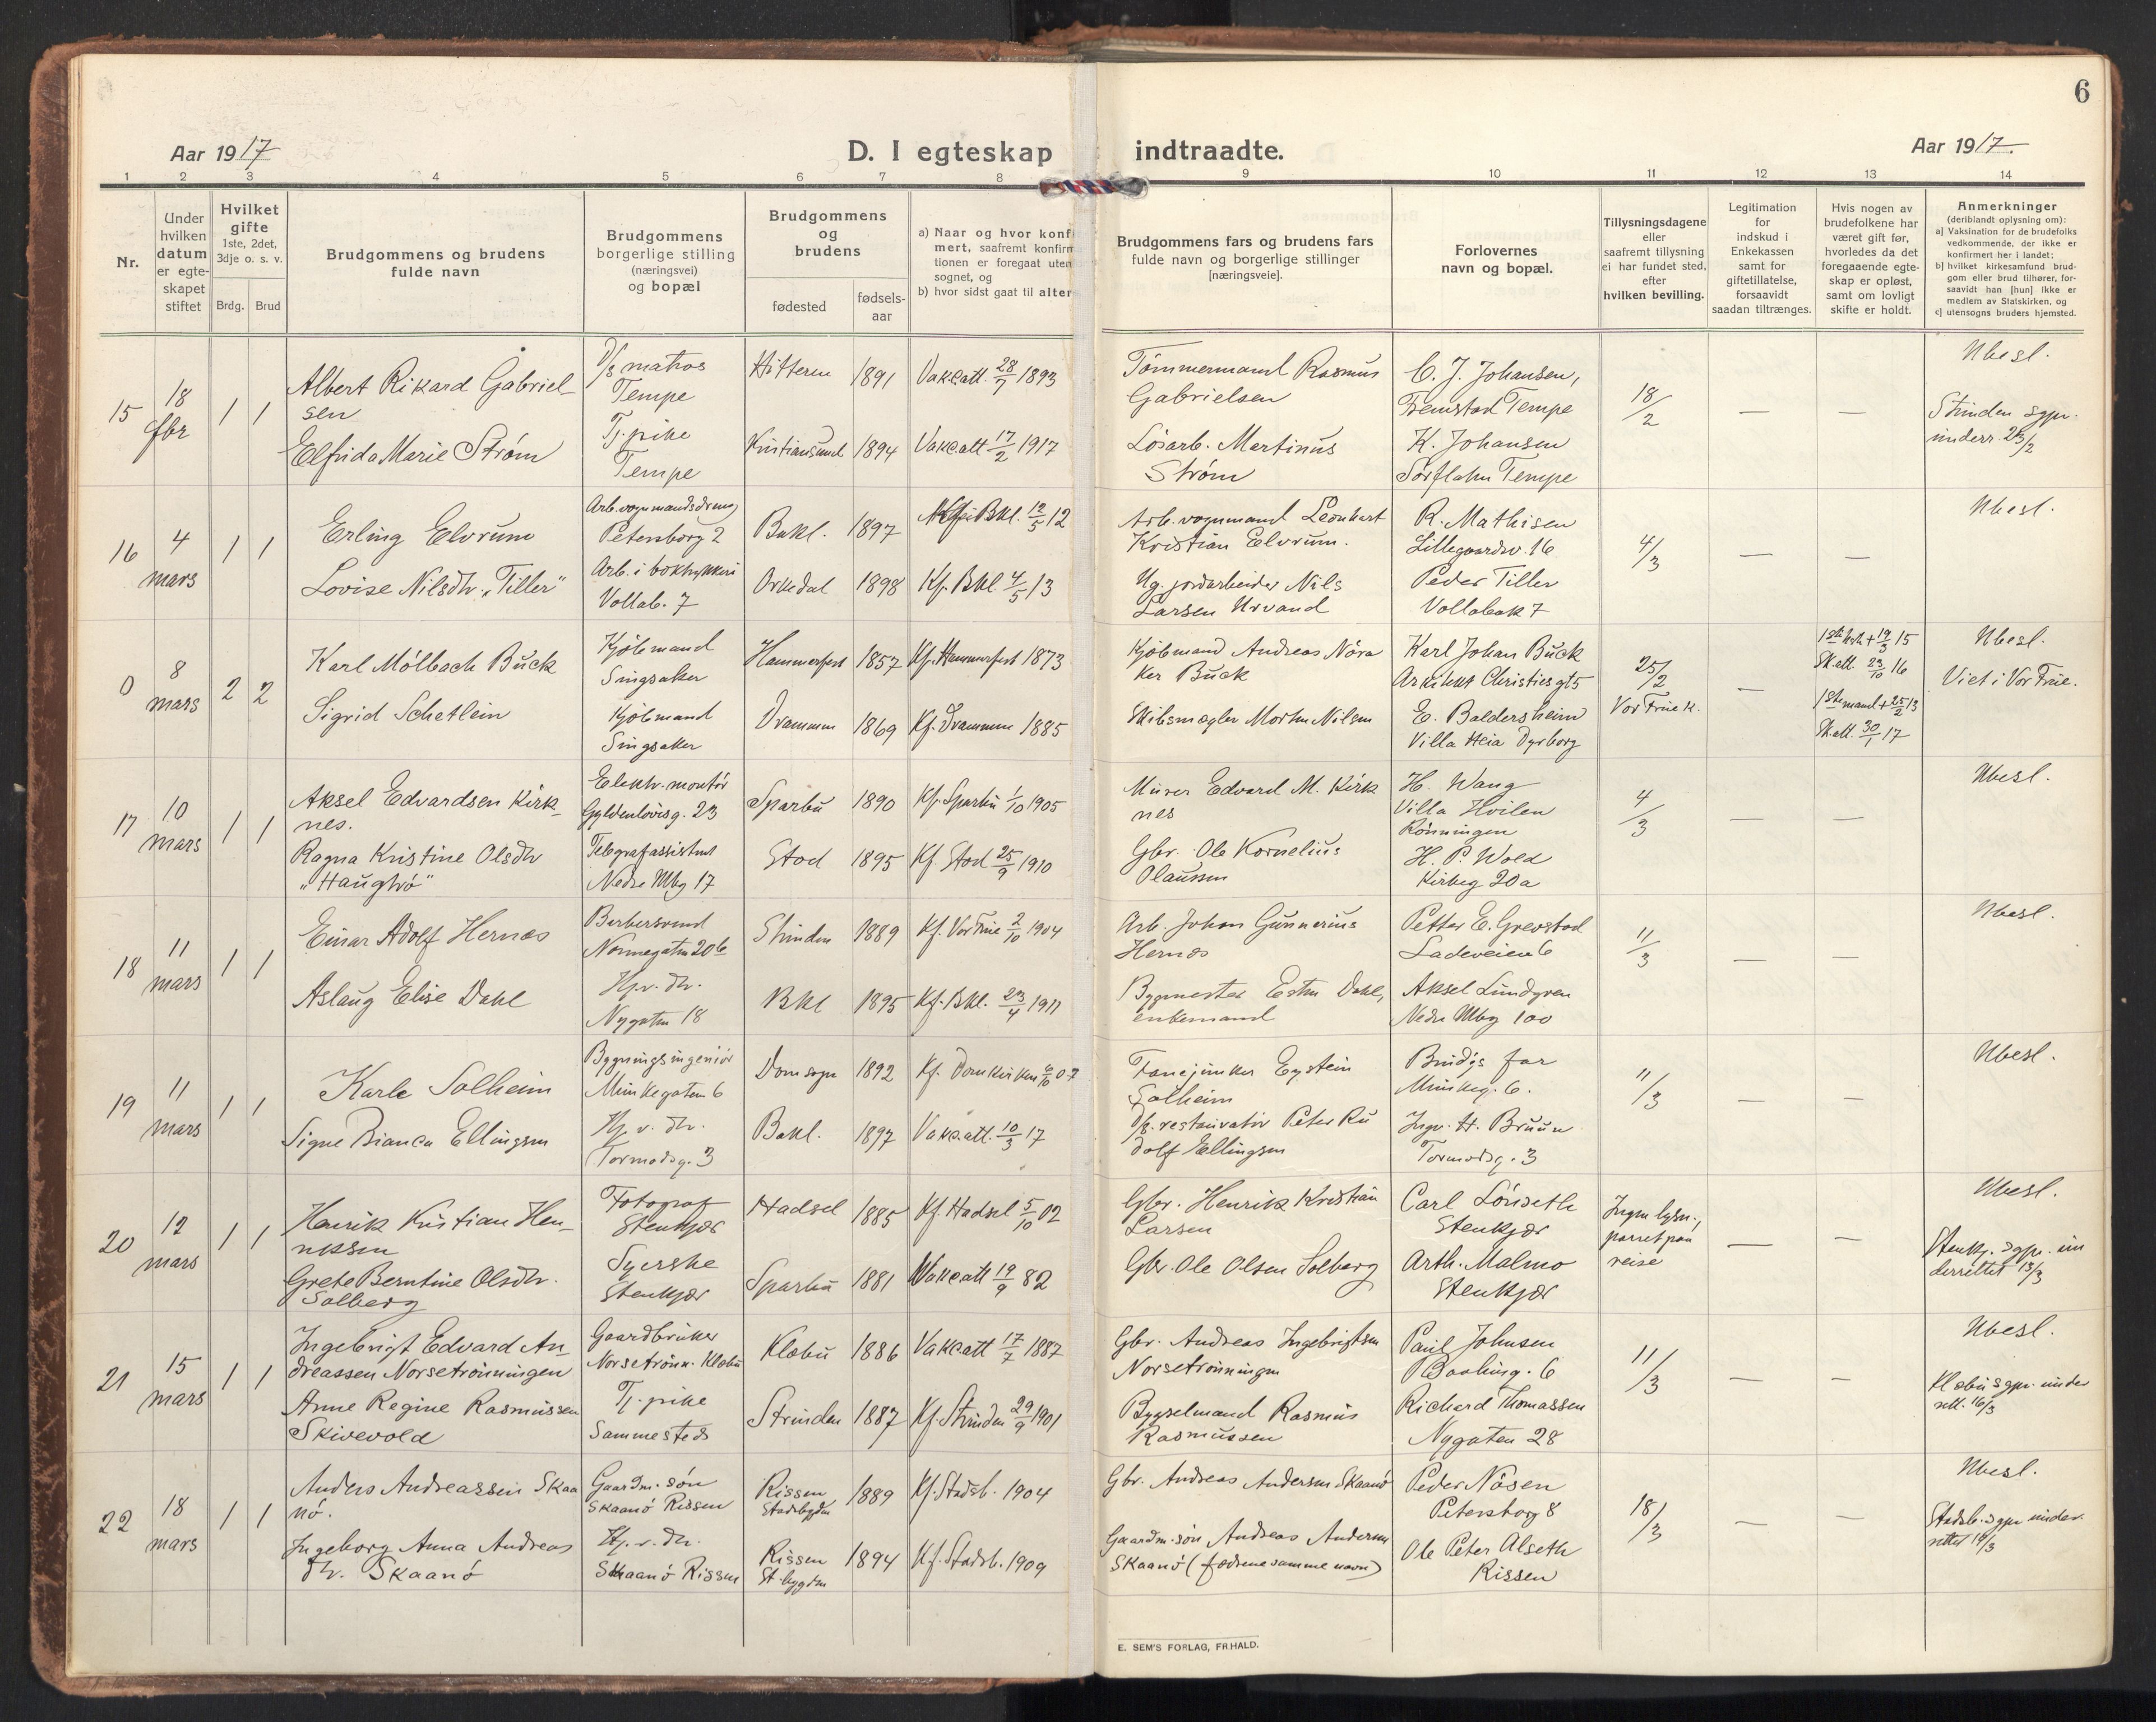 6
Aar 1917
D. I egteskap indtraadte.
Aar 1917.
1 2 3 4 5 6 7 8 9 10 11 12 13 14
Nr.
Under
hvilken
datum
er egte-
skapet
stiftet
Hvilket
gifte
1ste, 2det,
3dje o. s. v.
Brdg. Brud
Brudgommens og brudens
fulde navn
Brudgommens
borgerlige stilling
(næringsvei)
og bopæl
Brudgommens
og
brudens
fødested
fødsels-
aar
a) Naar og hvor konfi
mert, saafremt konfirm
tionen er foregaat uten
sognet, og
b) hvor sidst gaat til alter
Brudgommens fars og brudens fars
fulde navn og borgerlige stillinger
[næringsveie].
Forlovernes
navn og bopæl.
Tillysningsdagene
eller
saafremt tillysning
ei har fundet sted,
efter
hvilken bevilling.
Legitimation
for
indskud i
Enkekassen
samt for
giftetillatelse,
forsaavidt
saadan tiltrænges.
Hvis nogen av
brudefolkene har
været gift før,
hvorledes da det
foregaaende egte-
skap er opløst,
samt om lovligt
skifte er holdt.
Anmerkninger
(deriblandt oplysning om):
a] Vaksination for de brudefolks
vedkommende, der ikke er
konfirmert her i landet;
b] hvilket kirkesamfund brud-
gom eller brud tilhører, for-
saavidt han [hun] ikke er
medlem av Statskirken, og
c] utensogns bruders hjemsted.
15
18
fbr
1 1
Albert Rikard Gabriel-
sen
Elfrida Marie Strøm
D/s matros
Tempe
Tj. pike
Tempe
Hitteren 1891 Vakc att. 28/7 1893
Kristiansund 1894 Vakc att 17/2 1917
Tømmermand Rasmus
Gabrielsen
Løsarb. Martinus
Strøm
C. J. Johansen,
Fremstad Tempe
K. Johansen
Tempe
18/2
— —
Ubesl.
Strinden sgpr.
underr. 23/2
16
4
mars
1 1
Erling Elvrum
Lovise Nilsdtr. "Tiller"
Arb. vognmandsdreng
Petersborg 2
Arb. i boktrykkeri
Vollab. 7
Bakl. 1897 Kf. i Bkl. 12/5 12
Orkedal 1898 Kf. Bkl 4/5 13
Arb. vognmand Leonhart
Kristian Elvrum.
Ug. jordarbeider Nils
Larsen Urvand
R. Mathisen
Lillegaardsv. 16
Peder Tiller
Vollabak 7
4/3
— —
Ubesl.
0
8
mars
2 2
Karl Mølbach Buck
Sigrid Schetlein
Kjøbmand
Singsaker
Kjøbmand
Singsaker
Hammerfest 1857 Kf. Hammerfest 1873
Drammen 1869 Kf. Drammen 1885
Kjøbmand Andreas Nøra
Ker Buck
Skibsmægler Morten Nilsen
Karl Johan Buck
Arkitekt Christiesgt 5
E. Baldersheim
Villa Heia Dyrborg
25/2
Vor Frue k.
—
1ste + 19/3 15
Sk. att. 23/10 16
1ste mand + 25/2 13
Sk. att. 30/1 17
Ubesl.
Viet i Vor Frue.
17
10
mars
1 1
Aksel Edvardsen Kirk-
nes.
Ragna Kristine Olsdtr
"Haugtrø"
Elektr. montør
Gyldenløvesg. 23
Telegrafassistent
Nedre Mbg 17
Sparbu 1890 Kf. Sparbu 1/10 1905
Stod 1895 Kf. Stod 25/9 1910
Murer Edvard M. Kirk
nes
Gbr. Ole Kornelius
Olaussen
H. Wang
Villa Hvilen
Rønningen
H. P. Wold
Kirkeg 20a
4/3
— —
Ubesl.
18
11
mars
1 1
Einar Adolf Hernæs
Aslaug Elise Dahl
Barbersvend
Nonnegaten 20 b
Hj. v. dtr.
Nygaten 18
Strinden 1889 Kf. Vor Frue 2/10 1904
Bkl 1895 Kf. Bkl. 23/4 1911
Arb. Johan Gunnerius
Hernæs
Bygmester Esten Dahl,
enkemand
Petter E. Grevstad
Ladeveien 6
Aksel Lundgren
Nedre Mbg 100
11/3
— —
Ubesl.
19
11
mars
1 1
Karle Solheim
Signe Bianca Ellingsen
Bygningsingeniør
Munkegaten 6
Hj. v. dtr.
Tormodsg. 3
Domsogn 1892 Kf. Domkirken 6/10 07
Bakl. 1897 Vakc. att. 10/3 17
Fanejunker Eystein
Solheim
D/s. restauratør Peter Ru
dolf Ellingsen
Brudgs far
Munkeg. 6.
Ingv. H. Bruun
Tormodsg. 3
11/3
— —
Ubesl.
20
12
mars
1 1
Henrik Kristian Hen-
riksen
Grete Berntine Olsdtr.
Solberg
Fotograf
Stenkjær
Syerske
Stenkjær
Hadsel 1885 Kf. Hadsel 5/10 02
Sparbu 1881 Vakc att 19/9 82
Gbr. Henrik Kristian
Larsen
Gbr. Ole Olsen Solberg
Carl Lønseth
Stenkjær
Arth. Malmo
Stenkjær
Ingen lysn.,
parret paa
reise
— —
Ubesl.
Stenkj. sgpr. un
derrettet 13/3
21
15
mars
1 1
Ingebrigt Edvard An-
dreassen Norsetrønningen
Anne Regine Rasmussen
Skivevold
Gaardbruker
Norsetrønn. Klæbu
Tj. pike
Sammesteds
Klæbu 1886 Vakc att 17/7 1887
Strinden 1887 Kf. Strinden 29/9 1901
Gbr. Andreas Ingebrigtsen
Norsetrønningen
Bygselmand Rasmus
Rasmussen
Paul Johnsen
6
Richard Thomassen
Nygaten 28
11/3
— —
Ubesl.
Klæbu sgpr. under
rett. 16/3
22
18
mars
1 1
Anders Andreassen Skaa
nø.
Ingeborg Anna Andreas
dtr. Skaanø
Gaardm. søn
Skaanø Rissen
Hj. v. dtr.
Skaanø Rissen
Rissen
Stadsbygden
1889 Kf. Stadsb. 1904
Rissen
St. bygden
1894 Kf. Stadsb. 1909
Gbr. Andreas Andersen Skaanø
Gaardm. søn Andreas Andersen
Skaanø (fædrene samme navn)
Peder Nøsen
Petersborg 8
Ole Peter Alseth
Rissen
18/3
— —
Ubesl.
Stadsb. sgpr under-
rettet 19/3
E. SEM'S FORLAG, FR.HALD.